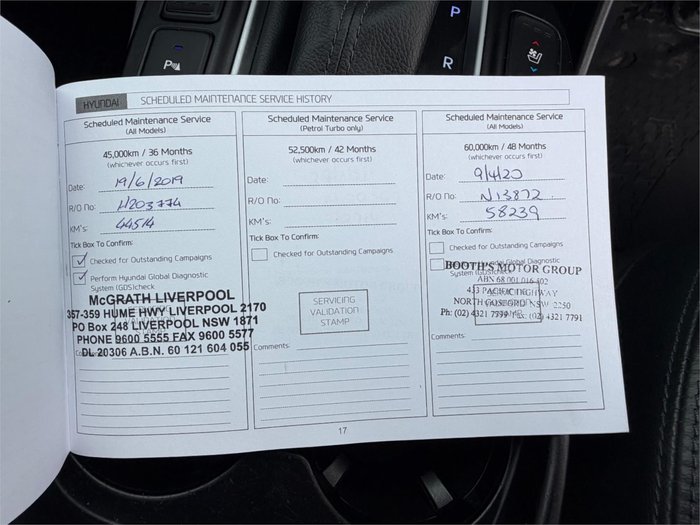 P
R
HYUNDAI SCHEDULED MAINTENANCE SERVICE HISTORY
Scheduled Maintenance Service
(All Models)
45,000km / 36 Months
(whichever occurs first)
Date: 19/6/2019
R/O No: H203774
KM's: 44514
Tick Box To Confirm:
Checked for Outstanding Campaigns
Perform Hyundai Global Diagnostic
System (GDS)check
McGRATH LIVERPOOL
357-359 HUME HWY LIVERPOOL 2170
PO Box 248 LIVERPOOL NSW 1871
PHONE 9600 5555 FAX 9600 5577
DL 20306 A.B.N. 60 121 604 055
Comments:
Scheduled Maintenance Service
(Petrol Turbo only)
52,500km / 42 Months
(whichever occurs first)
Date:
R/O No:
KM's:
Tick Box To Confirm:
Checked for Outstanding Campaigns
SERVICING
VALIDATION
STAMP
Comments:
Scheduled Maintenance Service
(All Models)
60,000km / 48 Months
(whichever occurs first)
Date: 9/4/20
R/O No: N13872
KM's: 58239
Tick Box To Confirm:
Checked for Outstanding Campaigns
BOOTH'S MOTOR GROUP
ABN 68 001 016 402
433 PACIFIC HIGHWAY
NORTH GOSFORD NSW 2250
Ph: (02) 4321 7799 Fx: (02) 4321 7791
Comments:
17